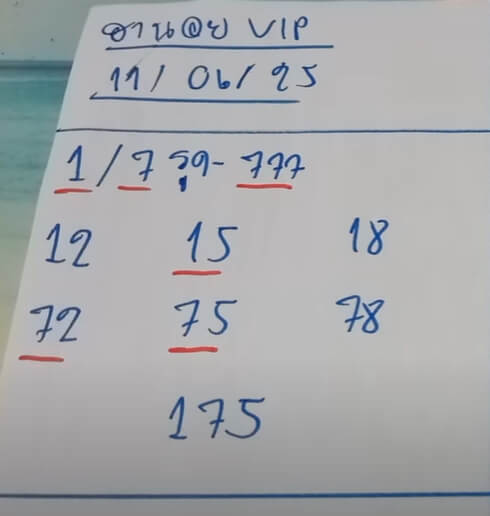 ฮานอย VIP
11/ 06/ 25
1/7 รูด- 777
12 15 18
72 75 78
175